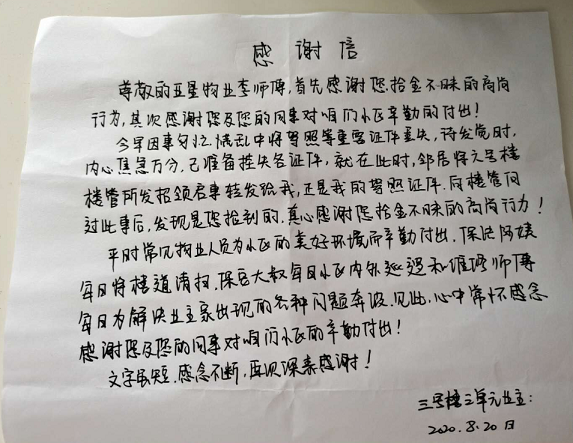 感谢信
尊敬的五星物业李师傅,首先感谢您拾金不昧的高尚
行为,其次感谢您及您的同事对咱们小区辛勤的付出!
今早因事匆忙,慌乱中将驾照等重要证件丢失,待发觉时,
内心焦急万分,已准备挂失各证件,就在此时,邻居将六号楼
楼管所发招领启事转发给我,正是我的驾照证件.向楼管问
过此事后,发现是您捡到的.真心感谢您拾金不昧的高尚行为!
平时常见物业人员为小区的美好环境而辛勤付出,保洁阿姨
每日将楼道清扫.保安大叔每日小区内外巡逻和维修师傅
每日为解决业主家出现的各种问题奔波.见此,心中常怀感念
感谢您及您的同事对咱们小区的辛勤付出!
文字虽短.感念不断,再次深表感谢!
三号楼三单元业主:
2020.8.20日